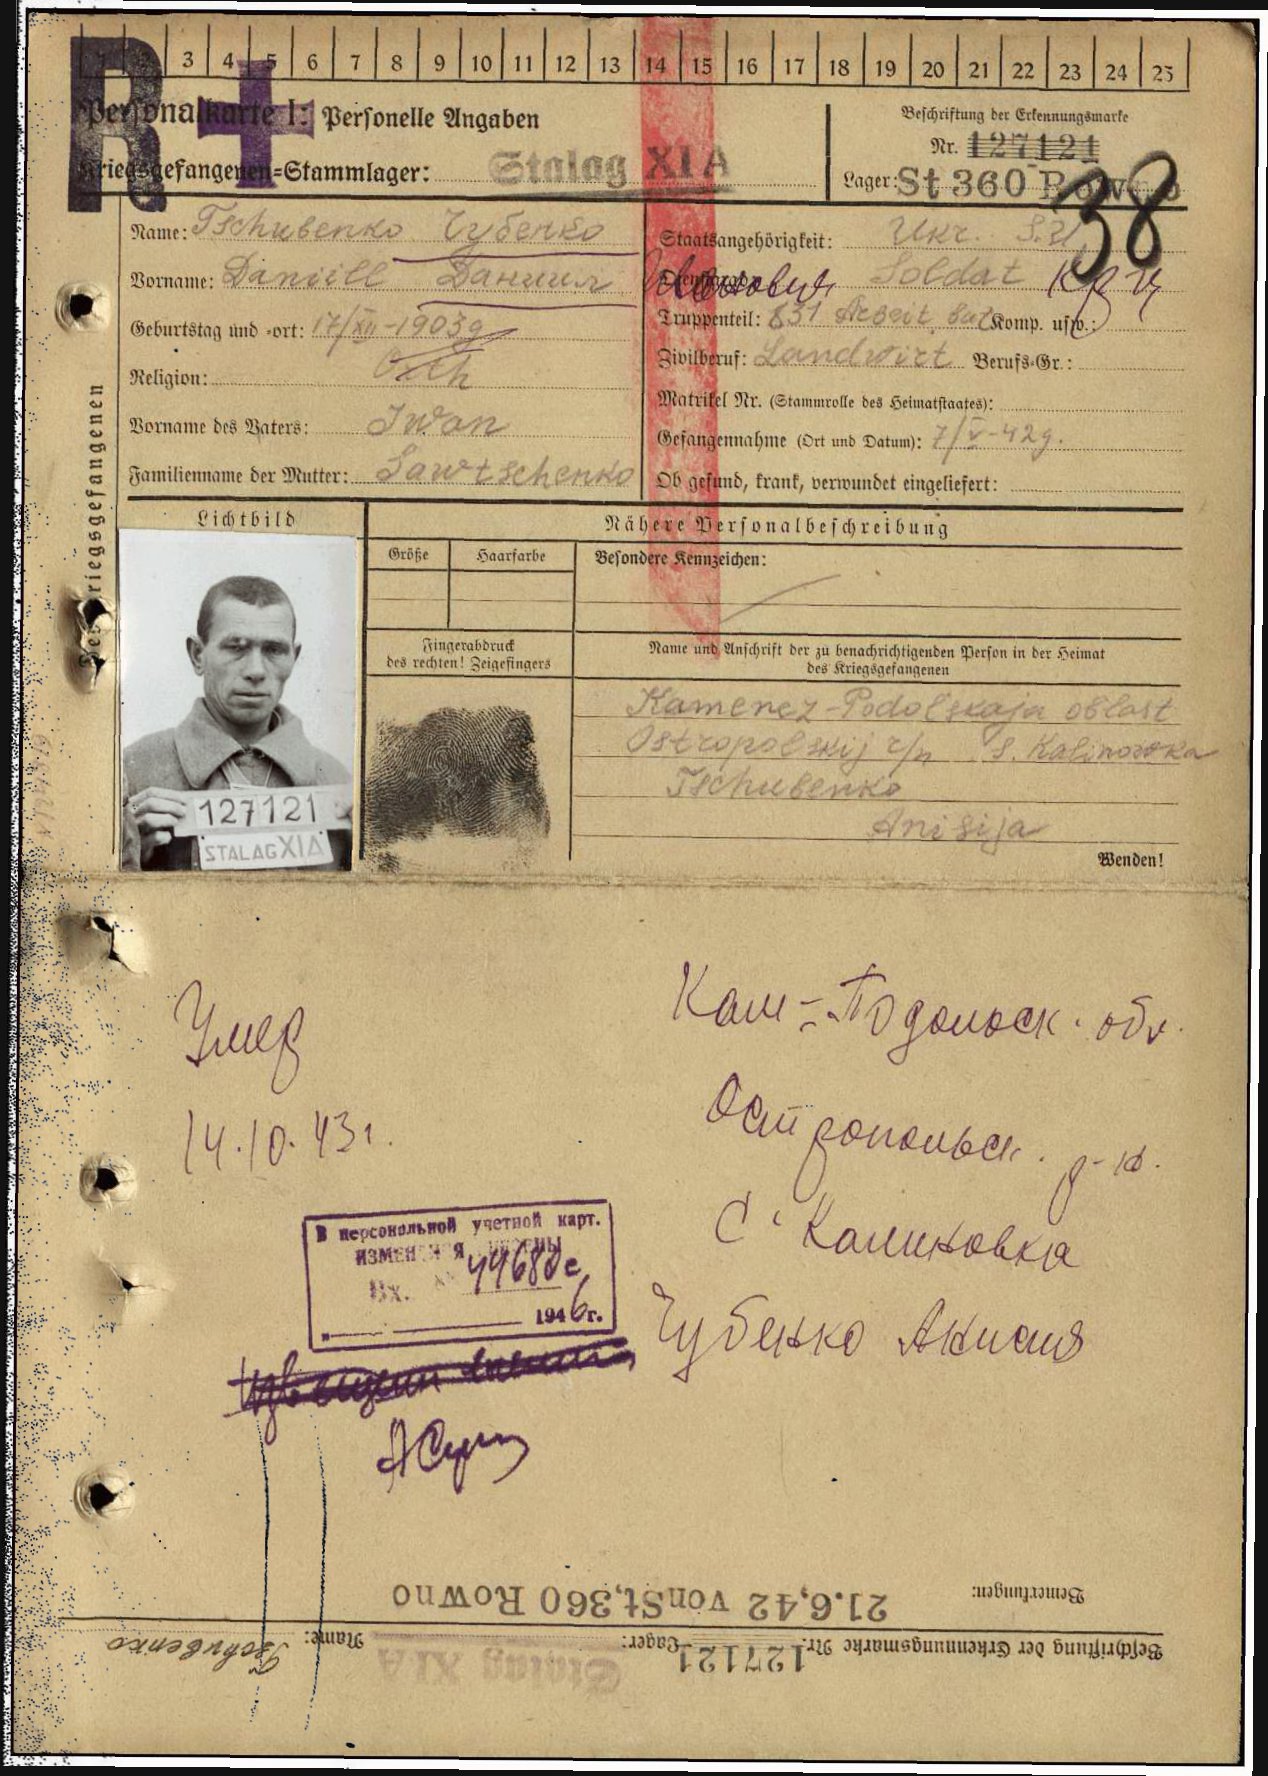 1 2 3 4 5 6 7 8 9 10 11 12 13 14 15 16 17 18 19 20 21 22 23 24 25
R +
Personalkarte I: Personelle Angaben
Kriegsgefangenen-Stammlager: Stalag XI A
Beschriftung der Erkennungsmarke
Nr. 127121
Lager: St 360 Rowno
38
Name: Tschubenko Чубенко
Vorname: Daniell Даниил
Geburtstag und -ort: 17/XII-1903g
Religion: Orth
Vorname des Vaters: Iwan
Familienname der Mutter: Sawtschenko
Staatsangehörigkeit: Ukr. S.U.
Иванович Soldat
Truppenteil: 831 Arbeit. bat Komp. usw.:
Zivilberuf: Landwirt Berufs-Gr.:
Matrikel Nr. (Stammrolle des Heimatstaates):
Gefangennahme (Ort und Datum): 7/V-42g.
Ob gesund, krank, verwundet eingeliefert:
Des Kriegsgefangenen
Lichtbild
Nähere Personalbeschreibung
Größe Haarfarbe Besondere Kennzeichen:
Fingerabdruck
des rechten! Zeigefingers
Name und Anschrift der zu benachrichtigenden Person in der Heimat
des Kriegsgefangenen
Kamenez-Podolskaja oblast
Ostropolskij r/n S. Kalinowka
Tschubenko
Anisija
127121
STALAG XI A
Wenden!
Умер
14.10.43г.
Кам-Подольск. обл.
Остропольск. р-н.
С. Калиновка
Чубенко Анисия
В персональной учетной карт.
ИЗМЕНЕНИЯ ВНЕСЕНЫ
Вх. №
1946 г.
Bemerkungen:
21.6.42 von St.360 Rowno
Beschriftung der Erkennungsmarke Nr. 127121 Lager: Stalag XI A
Name: Tschubenko